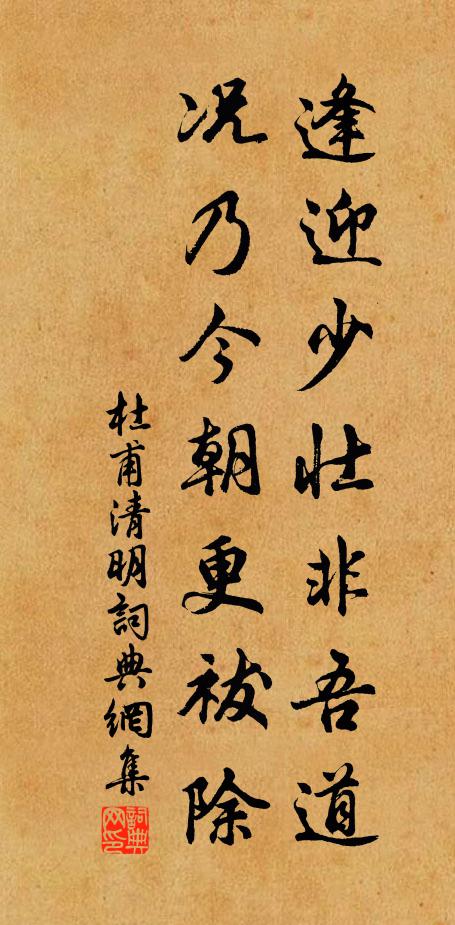 逢迎少壯非吾道
况乃今朝更祓除
杜甫清明詞典網集
詞典网印